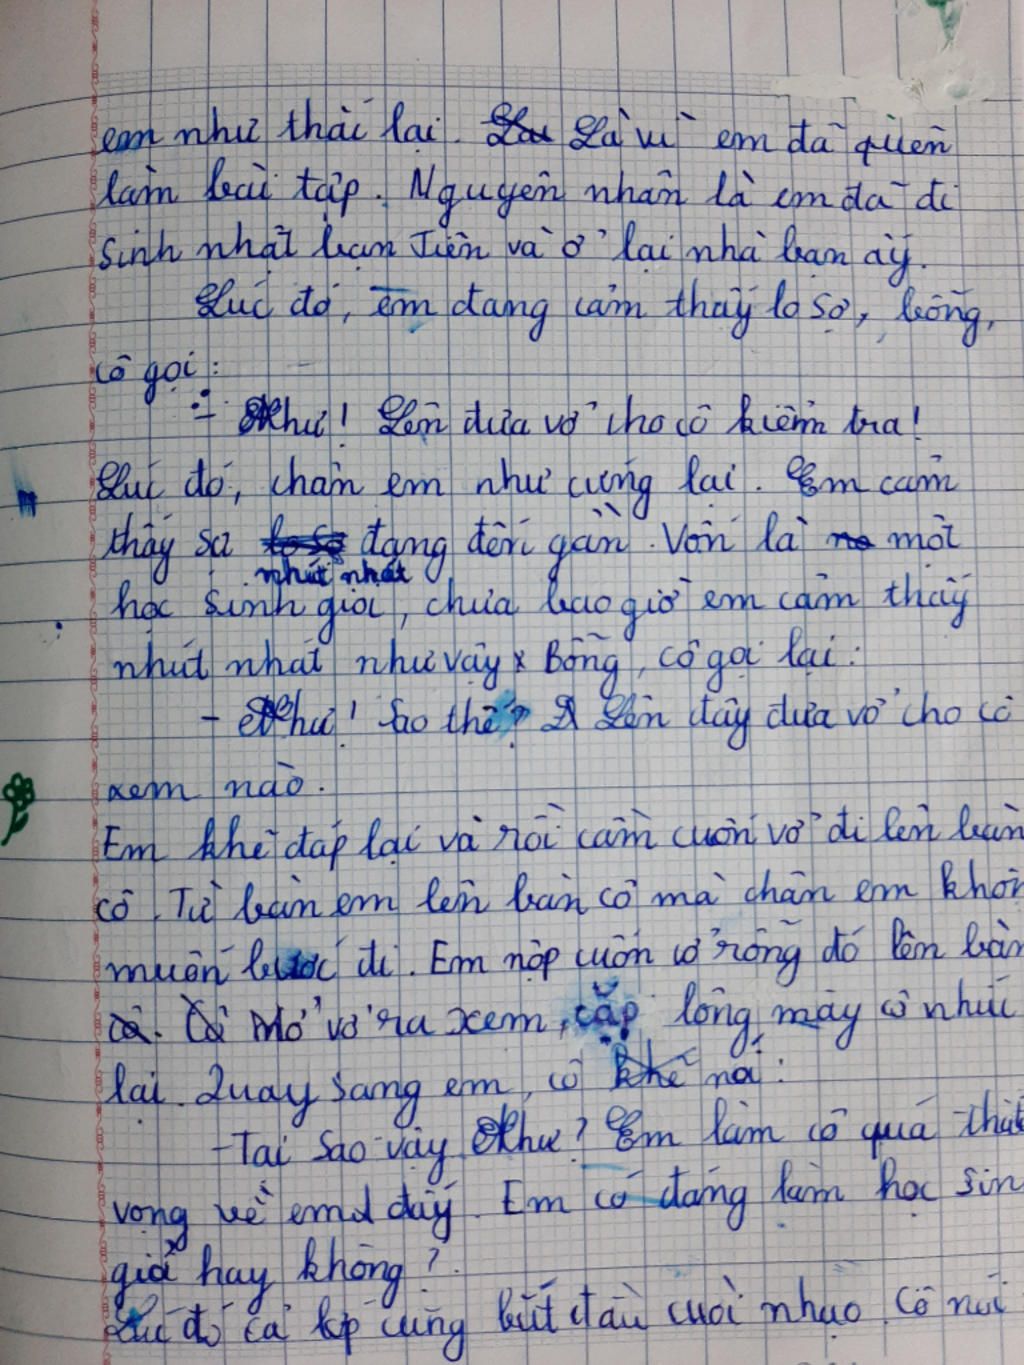 em như thắt lại. Là vì em đã quên
làm bài tập. Nguyên nhân là em đã đi
sinh nhật bạn Tiên và ở lại nhà bạn ấy.
Lúc đó, em đang cảm thấy lo sợ, bỗng,
cô gọi:
- Như! Lên đưa vở cho cô kiểm tra!
Lúc đó, chân em như cứng lại. Em cảm
thấy sự đang đến gần. Vốn là một
nhút nhát
học sinh giỏi, chưa bao giờ em cảm thấy
nhút nhát như vậy. Bỗng, cô gọi lại:
- Như! Sao thế? Lên đây đưa vở cho cô
xem nào.
Em khẽ đáp lại và rồi cầm cuốn vở đi lên bàn
cô. Từ bàn em lên bàn cô mà chân em
muốn bước đi. Em nộp cuốn vở rỗng đó lên bàn
cô. Cô mở vở ra xem, cặp lông mày cô nhíu
lại. Quay sang em, cô nói:
- Tại sao vậy Như? Em làm cô quá thất
vọng về em đấy. Em có đáng làm học sin
giỏi hay không?
Lúc đó cả lớp cũng bắt đầu cười nhạo. Cô nói